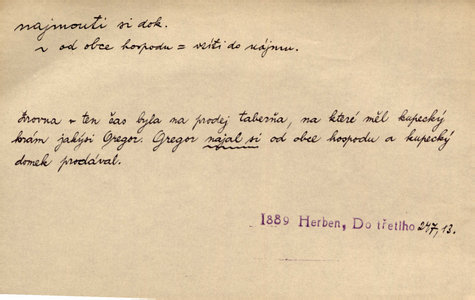 najmouti si dok.
~ od obce hospodu = vzíti do nájmu.
Zrovna v ten čas byla na prodej taberňa, na které měl kupecký
krám jakýsi Gregor. Gregor najal si od obce hospodu a kupecký
domek prodával.
1889 Herben, Do třetího 247, 13.